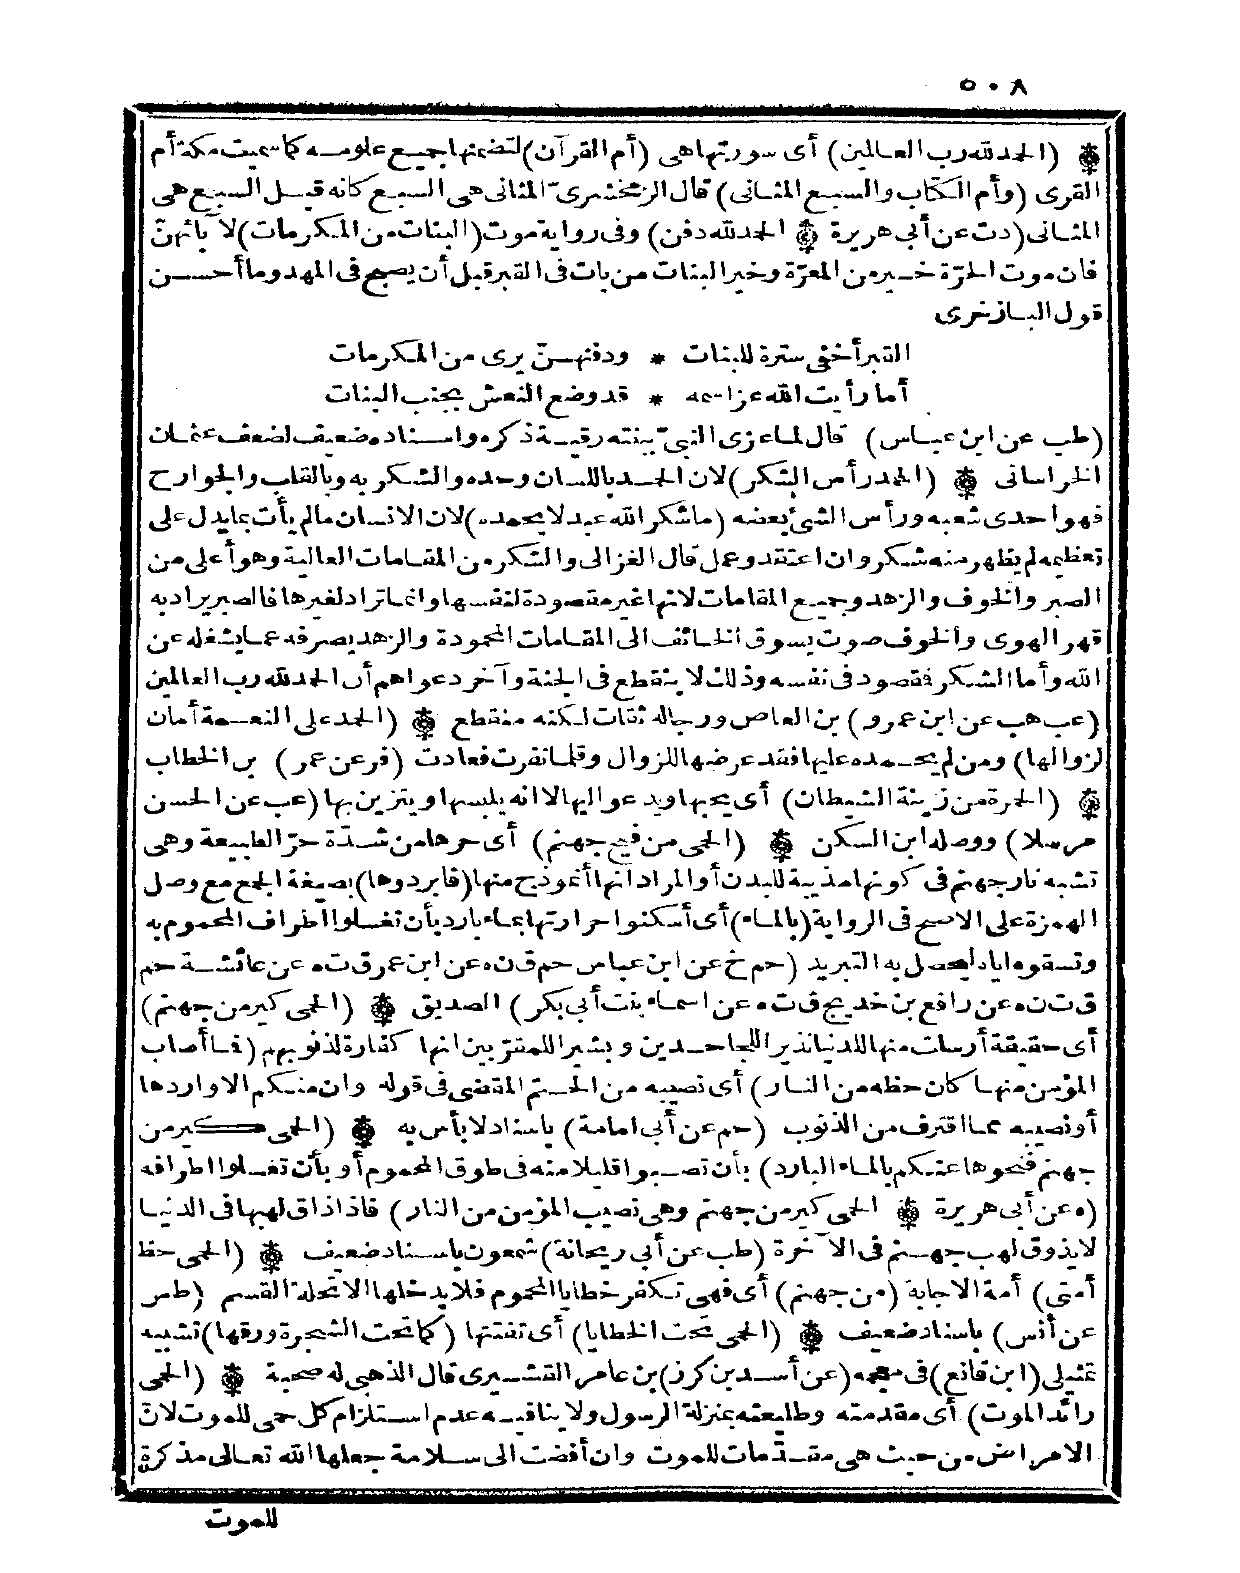 ٥٠٨
(الحمد لله رب العالمين) أى سورتها هى (أم القرآن) لتضمنها جميع علومـه كما سميت مكة أم
القرى (وأم الكتاب والسبع المثانى) قال الزمخشرىّ المثانى هى السبع كانه قيـل السبع هى
المثانى (دت عن أبى هريرة ۞ الحمد لله دفن) وفى رواية موت (البنات من المكرمات) لآبائهنّ
فان موت الحرّة خـير من المعرّة وخير البنات من بات فى القبر قبل أن يصبح فى المهد وما أحسـن
قول الباخرزى
القبر أخفى سترة للبنات * ودفنهـنّ يرى من المكرمات
أما رأيت الله عزاسمه * قد وضع النعش بجنب البنات
(طب عن ابن عباس) قال لما عزى النبىّ بابنته رقيـة ذكره واسناده ضعيف لضعف عثمان
الخراسانى ۞ (الحمد رأس الشكر) لان الحمـد باللسان وحده والشكر به وبالقلب والجوارح
فهو احدى شعبه ورأس الشئ بعضه (ما شكر الله عبد لا يحمده) لان الانسان مالم يأت بما يدل على
تعظيمه لم يظهر منه شكر وان اعتقد وعمل قال الغزالى والشكر من المقامات العالية وهو أعلى من
الصبر والخوف والزهد وجميع المقامات لانها غير مقصودة لنفسها وانما تراد لغيرها فالصبر يراد به
قهر الهوى والخوف صوت يسوق الخائف الى المقامات المحمودة والزهد يصرفه عما يشغله عن
الله وأما الشكر فمقصود فى نفسه وذلك لا ينقطع فى الجنة وآخر دعواهم أن الحمد لله رب العالمين
(عب هب عن ابن عمرو) بن العاص ورجاله ثقات لكنه منقطع ۞ (الحمد على النعـمة أمان
لزوالها) ومن لم يحـمده عليها فقد عرضها للزوال وقلما نفرت فعادت (فر عن عمر) بن الخطاب
۞ (الحمرة من زينة الشيطان) أى يحبها ويدعو اليها لا انه يلبسها ويتزين بها (عب عن الحسن
مرسلا) ووصله ابن السكن ۞ (الحمى من فيح جهنم) أى حرها من شدّة حرّ الطبيعة وهى
تشبه نار جهنم فى كونها مذيبة للبدن أو المراد انها أنموذج منها (فابردوها) بصيغة الجمع مع وصل
الهمزة على الاصح فى الرواية (بالماء) أى أسكنوا حرارتها بماء بارد بأن تغسلوا اطراف المحموم به
وتسقوه اياه ليحصل به التبريد (حم خ عن ابن عباس حم ق ن ه عن ابن عمر ق ت ه عن عائشـة حم
ق ت ن ه عن رافع بن خديج ق ت ه عن اسماء بنت أبى بكر) الصديق ۞ (الحمى كير من جهنم)
أى حقيقة أرسلت منها للدنيا نذيرا للجاحـدين وبشيرا للمقرّبين انها كفارة لذنوبهم (فما أصاب
المؤمن منها كان حظه من النار) أى نصيبه من الحـتم المقضى فى قوله وان منكم الا واردها
أو نصيبه مما اقترف من الذنوب (حم عن أبى امامة) باسناد لا بأس به ۞ (الحمى كير من
جهنم فنحوها عنكم بالماء البارد) بأن تصـبوا قليلا منه فى طوق المحموم أو بأن تغسلوا اطرافه
(ه عن أبى هريرة ۞ الحمى كير من جهنم وهى نصيب المؤمن من النار) فاذا ذاق لهبها فى الدنيا
لا يذوق لهب جهنم فى الآخرة (طب عن أبى ريحانة) شمعون باسناد ضعيف ۞ (الحمى حظ
أمتى) أمة الاجابة (من جهنم) أى فهى تكفر خطايا المحموم فلا يدخلها الا تحلة القسم (طس
عن أنس) باسناد ضعيف ۞ (الحمى تحت الخطايا) أى تفتتها (كما تحت الشجرة ورقها) تشبيه
تمثيلى (ابن قانع) فى معجمه (عن أسـد بن كرز) بن عامر القشيرى قال الذهبى له صحبة ۞ (الحمى
رائد الموت) أى مقدمته وطليعته بمنزلة الرسول ولا ينافيـه عدم استلزام كل حمى للموت لانّ
الامراض من حيث هى مقـدّمات للموت وان أفضت الى سلامة جعلها الله تعالى مذكرة
للموت